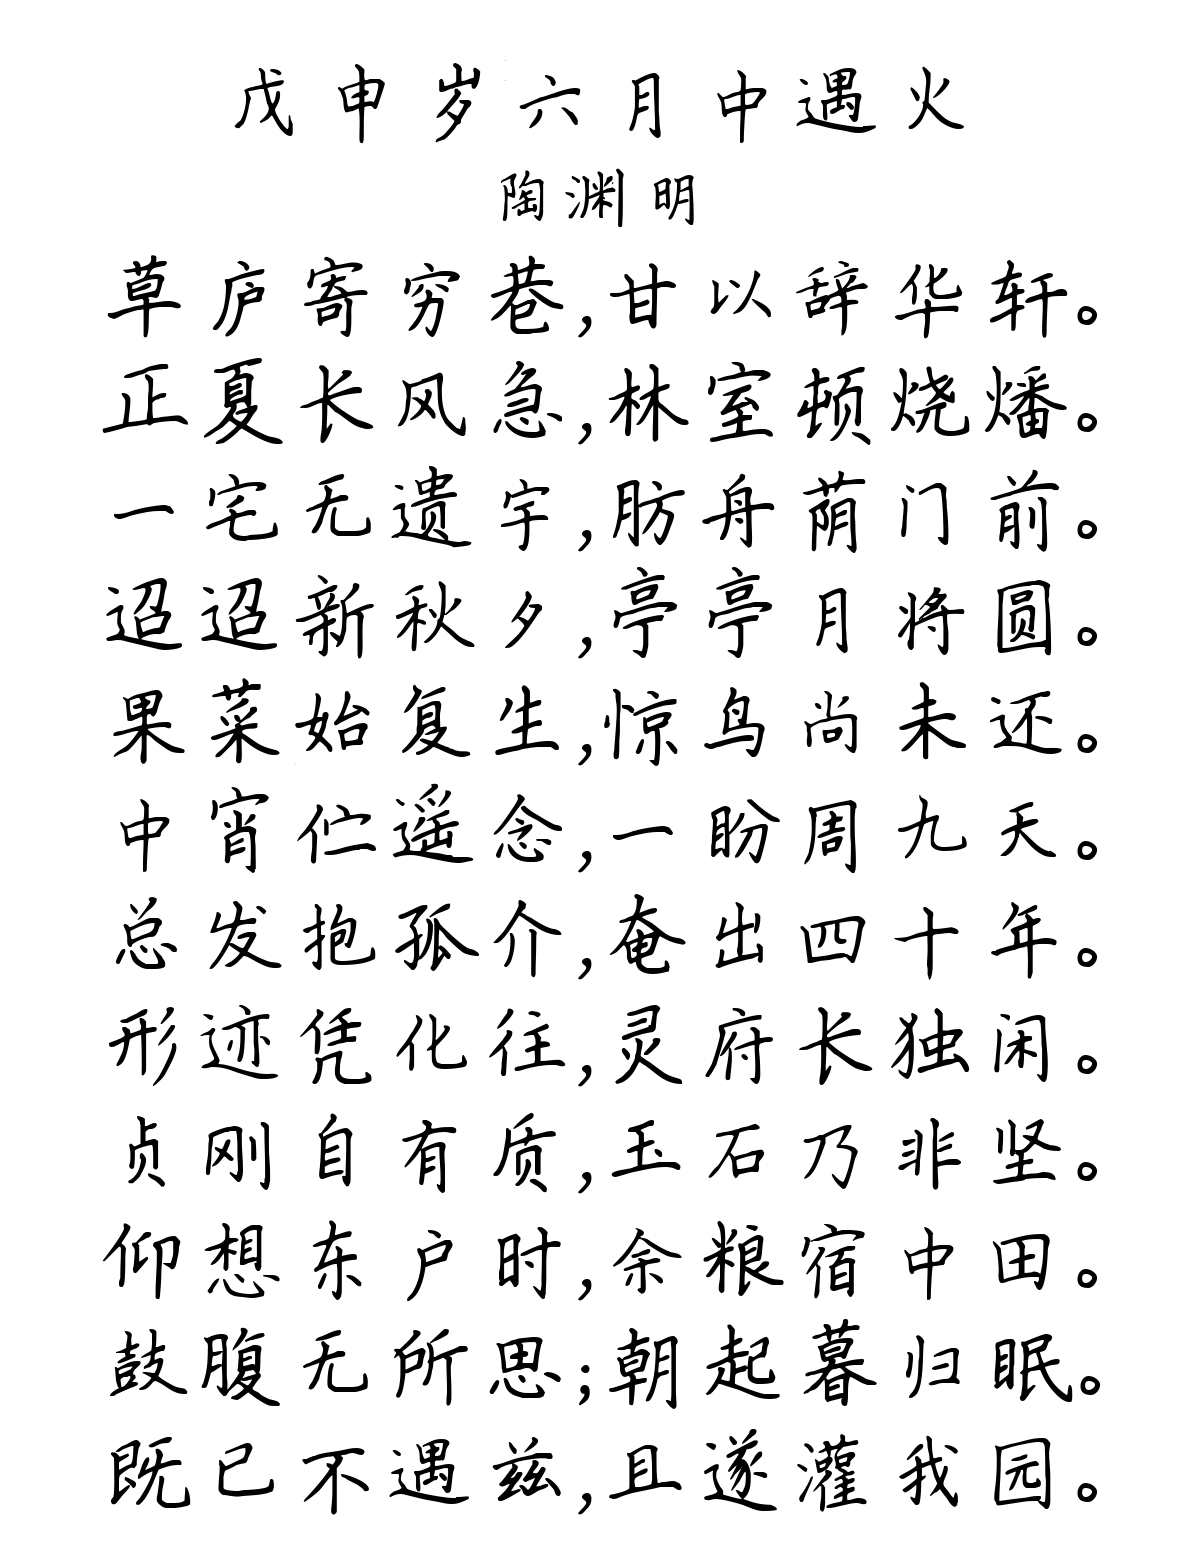 戊申岁六月中遇火
陶渊明
草庐寄穷巷,甘以辞华轩。
正夏长风急,林室顿烧燔。
一宅无遗宇,舫舟荫门前。
迢迢新秋夕,亭亭月将圆。
果菜始复生,惊鸟尚未还。
中宵伫遥念,一盼周九天。
总发抱孤介,奄出四十年。
形迹凭化往,灵府长独闲。
贞刚自有质,玉石乃非坚。
仰想东户时,余粮宿中田。
鼓腹无所思;朝起暮归眠。
既已不遇兹,且遂灌我园。